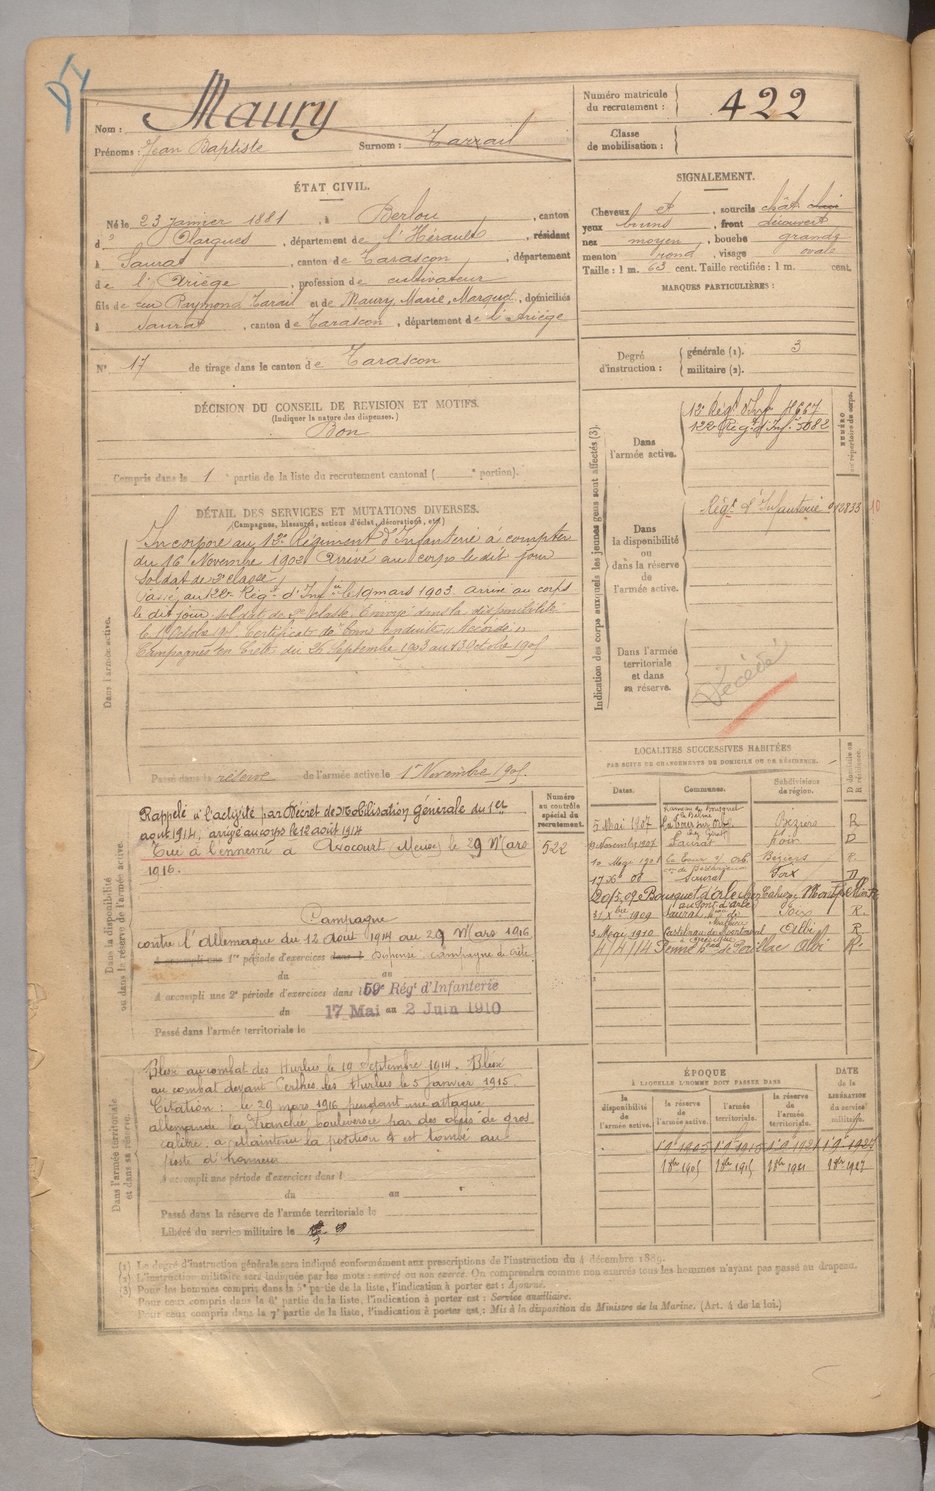 Nom : Maury
Prénoms : Jean Baptiste Surnom : Tarrail
Numéro matricule du recrutement : 422
Classe de mobilisation :
ÉTAT CIVIL.
Né le 23 Janvier 1881, à Berlou, canton
d'Olargues, département de l'Hérault, résidant
à Saurat, canton de Tarascon, département
de l'Ariège, profession de cultivateur
fils de feu Raymond Tarail et de Maury, Marie, Margut, domiciliés
à Saurat, canton de Tarascon, département de l'Ariège
N° 17 de tirage dans le canton de Tarascon
SIGNALEMENT.
Cheveux et, sourcils chât
yeux bruns, front découvert
nez moyen, bouche grande
menton rond, visage ovale
Taille : 1 m. 63 cent. Taille rectifiée : 1 m. cent.
MARQUES PARTICULIÈRES :
Degré d'instruction : générale (1). 3
militaire (2).
DÉCISION DU CONSEIL DE REVISION ET MOTIFS.
(Indiquer la nature des dispenses.)
Bon
Compris dans la 1e partie de la liste du recrutement cantonal ( e portion).
DÉTAIL DES SERVICES ET MUTATIONS DIVERSES.
(Campagnes, blessures, actions d'éclat, décorations, etc.)
Dans l'armée active.
Incorporé au 12e Régiment d'Infanterie à compter
du 16 Novembre 1902 Arrivé au corps le dit jour
soldat de 2e classe
Passé au 122e Régt d'Infrie le 19 mars 1903 arrivé au corps
le dit jour soldat de 2e classe Envoyé dans la disponibilité
le Octobre 1905 Certificat de bonne conduite "Accordé"
Campagnes en Crète du 26 Septembre 1903 au 13 Octobre 1905
Passé dans la réserve de l'armée active le 1er Novembre 1905.
Indication des corps auxquels les jeunes gens sont affectés (3).
NUMÉRO au répertoire du corps.
Dans l'armée active.
12e Régt d'Inf. 4667
122 Régt d'Inf. 5082
Dans la disponibilité ou dans la réserve de l'armée active.
Régt d'Infanterie
Dans l'armée territoriale et dans sa réserve.
Décédé
Dans la disponibilité ou dans la réserve de l'armée active.
Numéro au contrôle spécial du recrutement.
522
Rappelé à l'activité par Décret de Mobilisation générale du 1er
août 1914, arrivé au corps le 12 août 1914
Tué à l'ennemi à Avocourt, Meuse, le 29 Mars
1916.
Campagne
contre l'Allemagne du 12 Août 1914 au 29 Mars 1916
A accompli une 1re période d'exercices dans l Dispensé campagne de Crète
du au
A accompli une 2e période d'exercices dans l 59e Régt d'Infanterie
du 17 Mai au 2 Juin 1910
Passé dans l'armée territoriale le
LOCALITÉS SUCCESSIVES HABITÉES
PAR SUITE DE CHANGEMENTS DE DOMICILE OU DE RÉSIDENCE.
Dates. Communes. Subdivisions de région. D domicile ou R résidence.
5 Mai 1907 La Tour sur Orb Béziers R
Novembre 1907 Saurat Foix D
10 Mars 1908 La Tour s/ Orb Béziers
08 Saurat Foix D
20/5/09 Bousquet d'Orb Montpellier R
1909 Saurat Foix R.
3 Mai 1910 Castelnau de Montmiral Albi R
4/4/14 Penne Albi R.
Dans l'armée territoriale et dans sa réserve.
Blessé au combat des Hurlus le 19 Septembre 1914. Blessé
au combat devant Perthes les Hurlus le 5 janvier 1915.
Citation : le 29 mars 1916 pendant une attaque
allemande la tranchée bouleversée par des obus de gros
calibre, a maintenu la position & est tombé au
poste d'honneur
A accompli une période d'exercices dans l
du au
Passé dans la réserve de l'armée territoriale le
Libéré du service militaire le
ÉPOQUE
À LAQUELLE L'HOMME DOIT PASSER DANS
la disponibilité de l'armée active. la réserve de l'armée active. l'armée territoriale. la réserve de l'armée territoriale.
DATE de la LIBÉRATION du service militaire.
1 9 1905 1 9 1915 1 9 1921 1 9 1927
1 1905 1 1915 1 1921 1 1927
(1) Le degré d'instruction générale sera indiqué conformément aux prescriptions de l'instruction du 4 décembre 1889.
(2) L'instruction militaire sera indiquée par les mots : exercé ou non exercé. On comprendra comme non exercés tous les hommes n'ayant pas passé au drapeau.
(3) Pour les hommes compris dans la 5e partie de la liste, l'indication à porter est : Ajourné.
Pour ceux compris dans la 6e partie de la liste, l'indication à porter est : Service auxiliaire.
Pour ceux compris dans la 7e partie de la liste, l'indication à porter est : Mis à la disposition du Ministre de la Marine. (Art. 4 de la loi.)